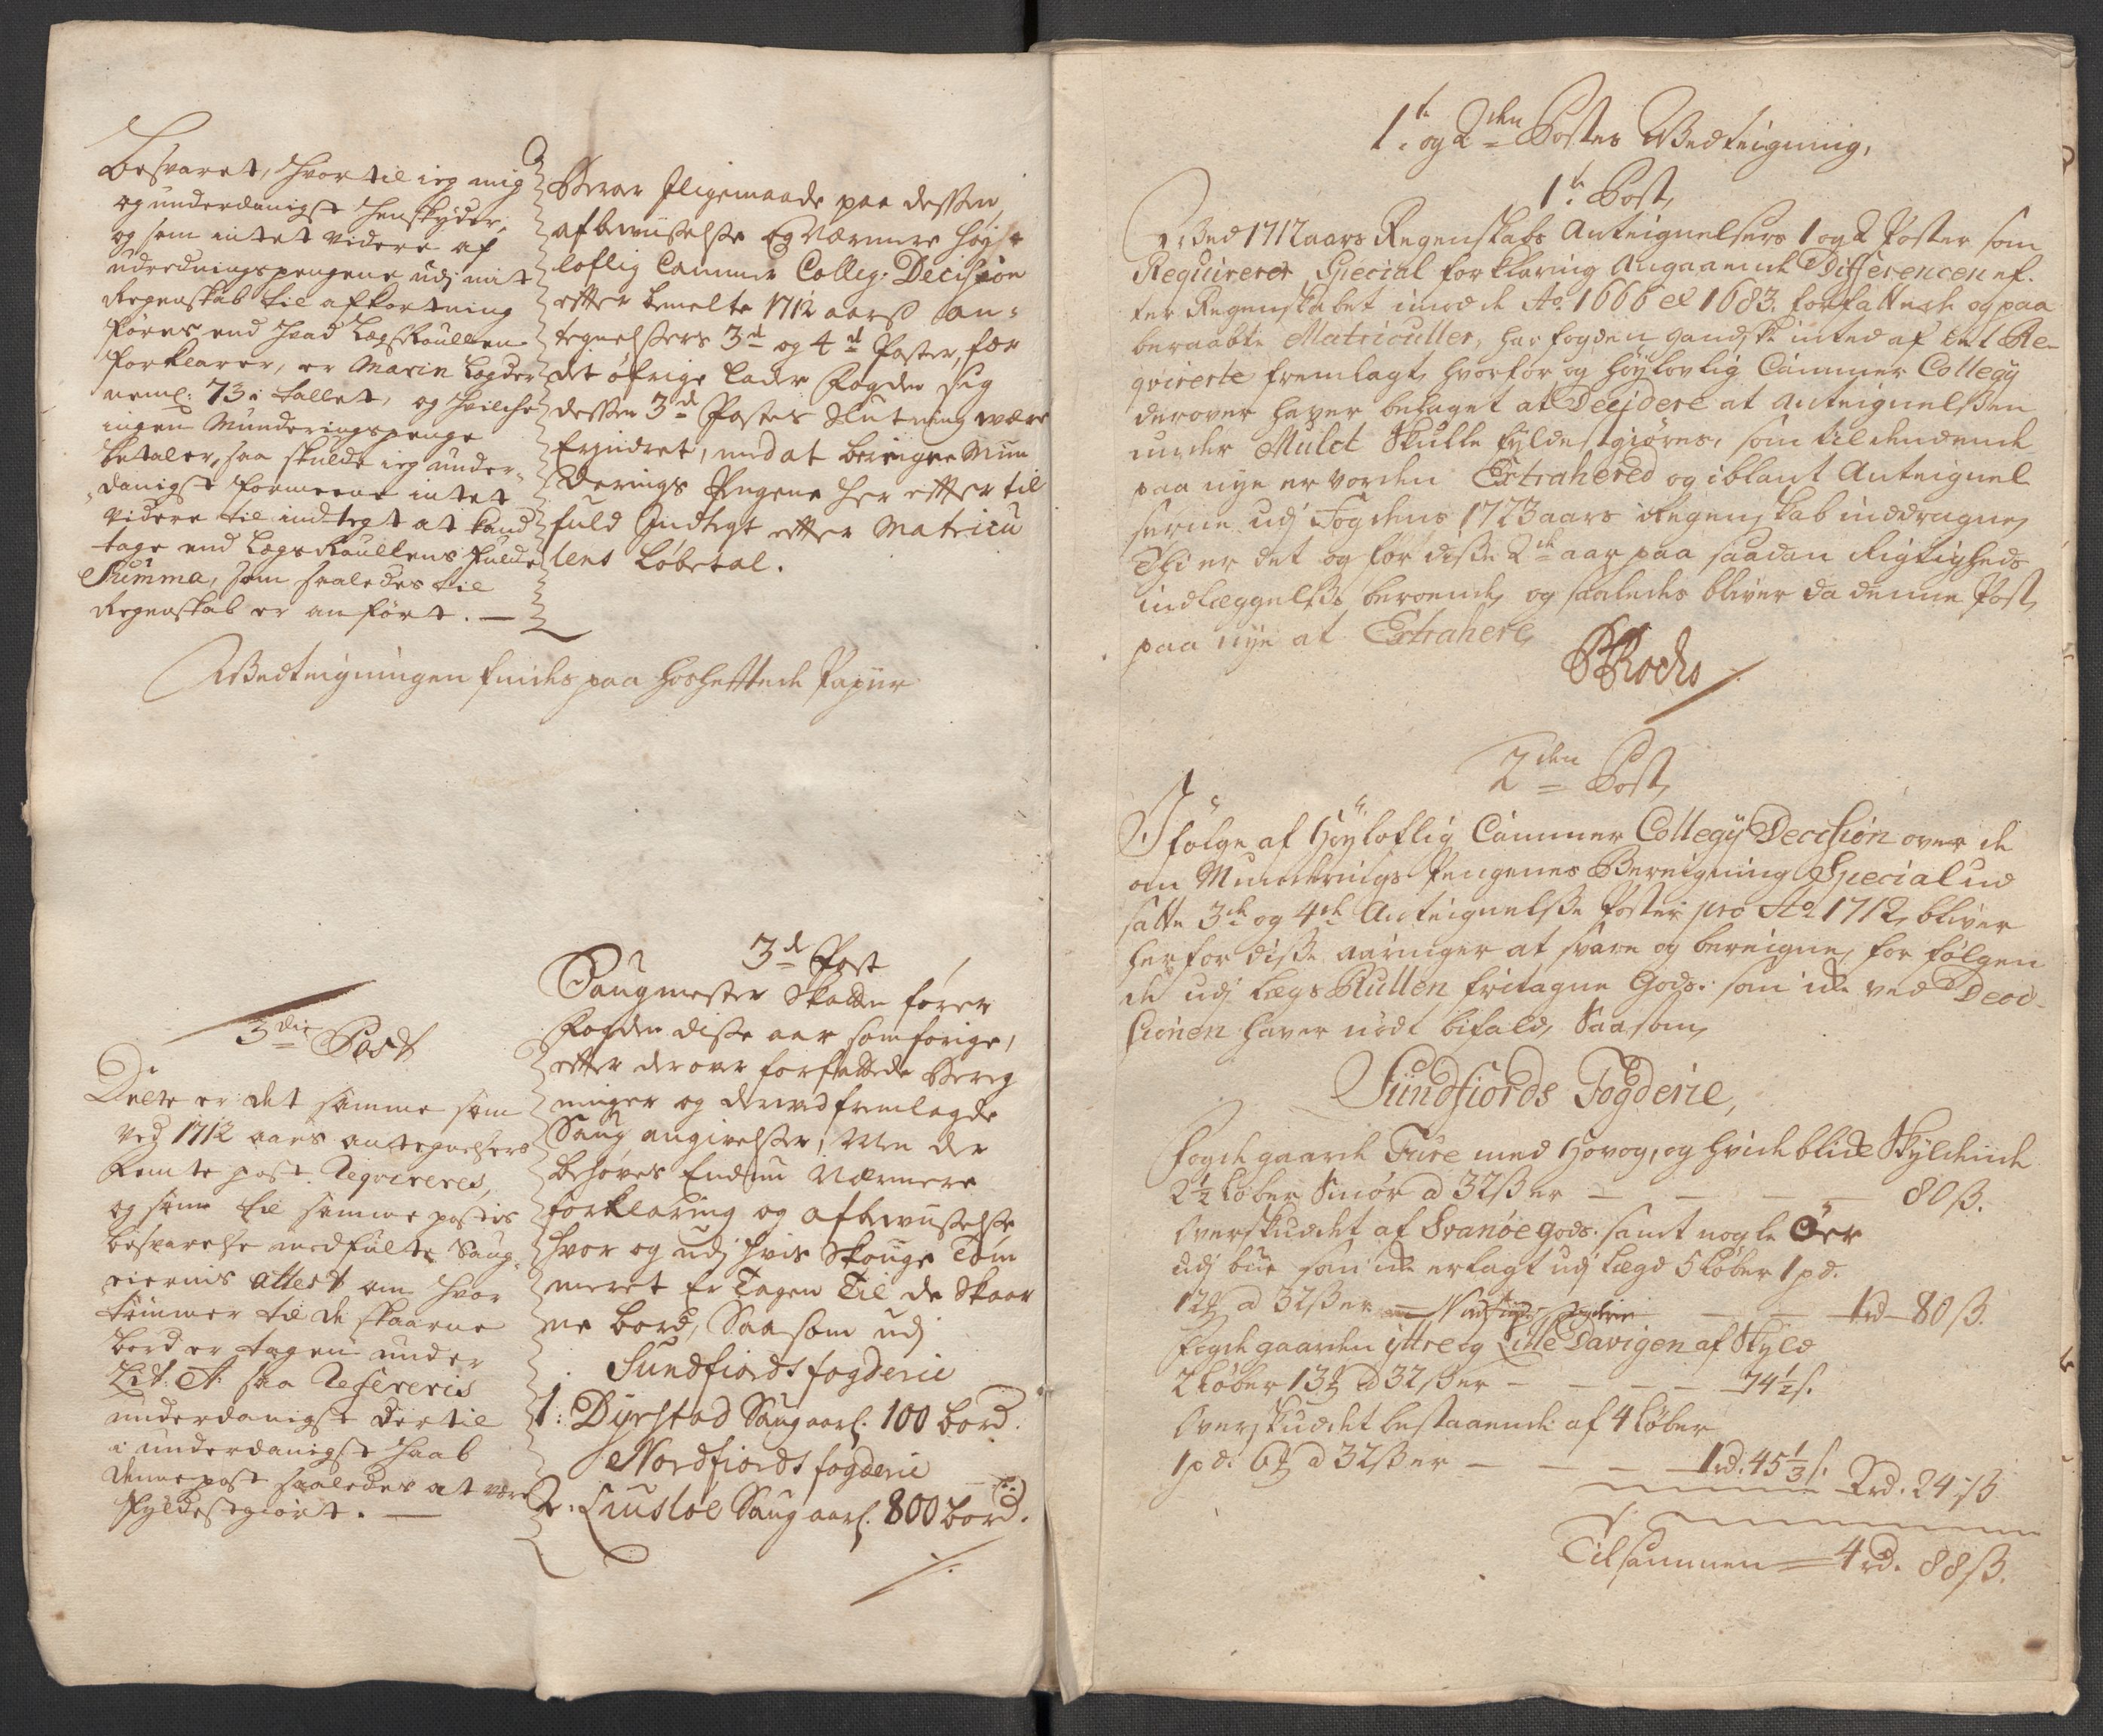 Besvaret, hvortil ieg mig
og underdanigst henskyder,
og som intet videre af
udredningspengene udj mit
Regenskab til afkortning
føres end hvad LægsRoullen
forklarer, er Marin Lægder
neml: 73 i tallet, og hvilche
ingen Munderingspenge
betaler, saa skulde ieg under-
danigst formeene intet
videre til indtegt at kand
tage end LægsRoullens fulde
Summa, som saaledes til
Regenskab er anført. —
Beror Iligemaade paa dessen
afbeviiselsse og Nærmere høyst
loflig Cammer Colleg: Decision
effter bemelte 1712 aarss an-
tegnelssers 3de og 4de Poster, for
det øfrige lader Fogden sig
dessen 3de Postes Slutning være
Erindret, med at bereigne Mun
Derings Pengene her effter til
fuld Indtegt effter Matricu
lens Løbetal.
Wedteigningen findes paa hoshefftede Papiir
3die Post
Dette er det samme som
ved 1712 aars antegnelsers
femte post Reqvireres,
og som til samme postes
besvarelse medfulte Saug-
eiernis attest om hvor
tømmer til de skaarne
bord er tagen under
Lit: A: saa Refereris
underdanigst dertil
i underdanigst haab
denne post saaledes at være
fyldestgiort. —
3de Post
Saugmester Skatten fører
Fogden disse aar som forige,
effter derover forfattede Bereg
ninger og derved fremlagde
Saug angivelsser, Men der
behøves Endnu Nærmere
forklaring og afbeviiselsse
hvor og udj hvis Skouge Tøm
meret Er Tagen Til de Skaar
ne bord, Saasom udj
Sundfiords fogderie
1: Dyrstad Saug aarl. 100 bord.
Nordfiords fogderie
2: Liusløe Saug aarl. 800 bord.
1te og 2den Postes Wedteigning,
1te Post,
Wed 1712 aars Regenskabs Anteignelsers 1 og 2 Poster som
Requirerer Special forklaring Angaaende Differencen ef-
ter Regenskabet imod de Ao. 1666 et 1683. forfattede og paa
beraabte Matriculler, har fogden gandske inted af det Re-
qvirerte fremlagt, hvorfor og høylovlig Cammer Collegij
derover hafver behaget at Decidere at Anteignelssen
under Mulct Skulle fyldestgiøres, som til den ende
paa nye er vorden Extrahered og iblant Anteignel
serne udj Fogdens 1723 aars Regenskab inddragne,
Thi er det og for disse 2de aar paa saadan Rigtigheds
indlæggelsse beroende, og saaledes bliver da denne Post
paa nye at Extrahere,
2den Post,
Ifølge af Høyloflig Cammer Collegij Decision over de
om Munderings Pengenes Bereigning Special ud
satte 3de og 4de Anteignelsse Poster pro Ao. 1712, bliver
her for disse aaringer at svare og bereigne, for følgen
de udj LægsRullen fritagne Gods: som icke ved Deci-
sionen haver nødt bifald, Saasom,
Sundfiords Fogderie,
Fogde gaarde Fure med Hovog, og Hvide blide Skyldende
2½ Løber Smør a 32ß er — — — — 80ß.
Overskuddet af Svanøe gods. samt nogle Øer
udj bue som icke erlagt udj Lægd 5 Løber 1 pd.
12 a 32ß er — — — 1rd 80ß.
Fogde gaarden yttre og Litle Davigen af Skyld
2 Løber 13 a 32ß er — — — — 74½ß.
Overskuddet bestaaende af 4 Løber
1 pd. 6 a 32ß er — — — 1rd. 45⅓ß.
2rd. 24ß
Tilsammen = 4rd. 88ß.